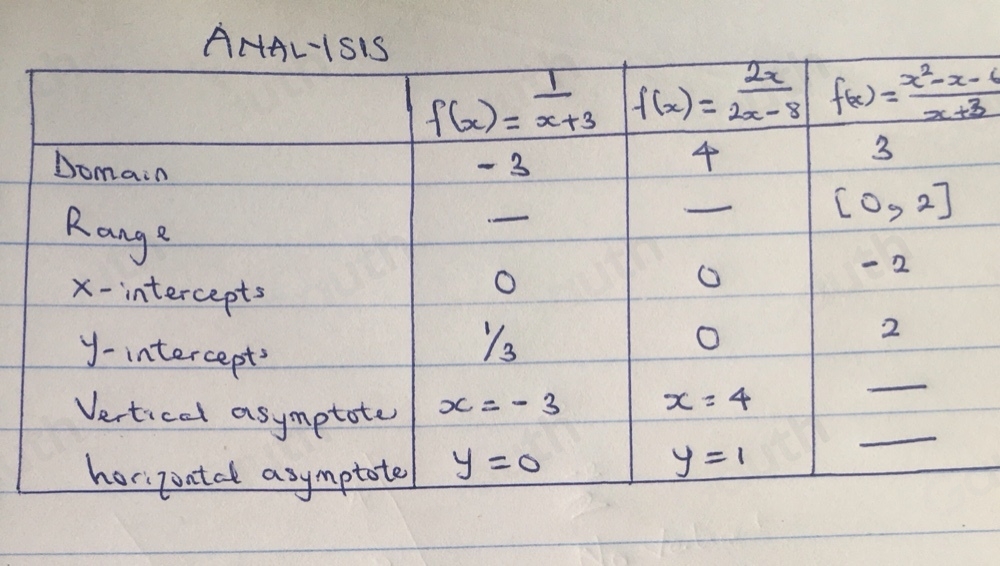 ANALYSIS
f(x) = 1/x+3 f(x) = 2x/2x-8 f(x) = x²-x-6/x+3
Domain -3 4 3
Range — — [0, 2]
x-intercepts 0 0 -2
y-intercepts 1/3 0 2
Vertical asymptote x = -3 x = 4 —
horizontal asymptote y = 0 y = 1 —